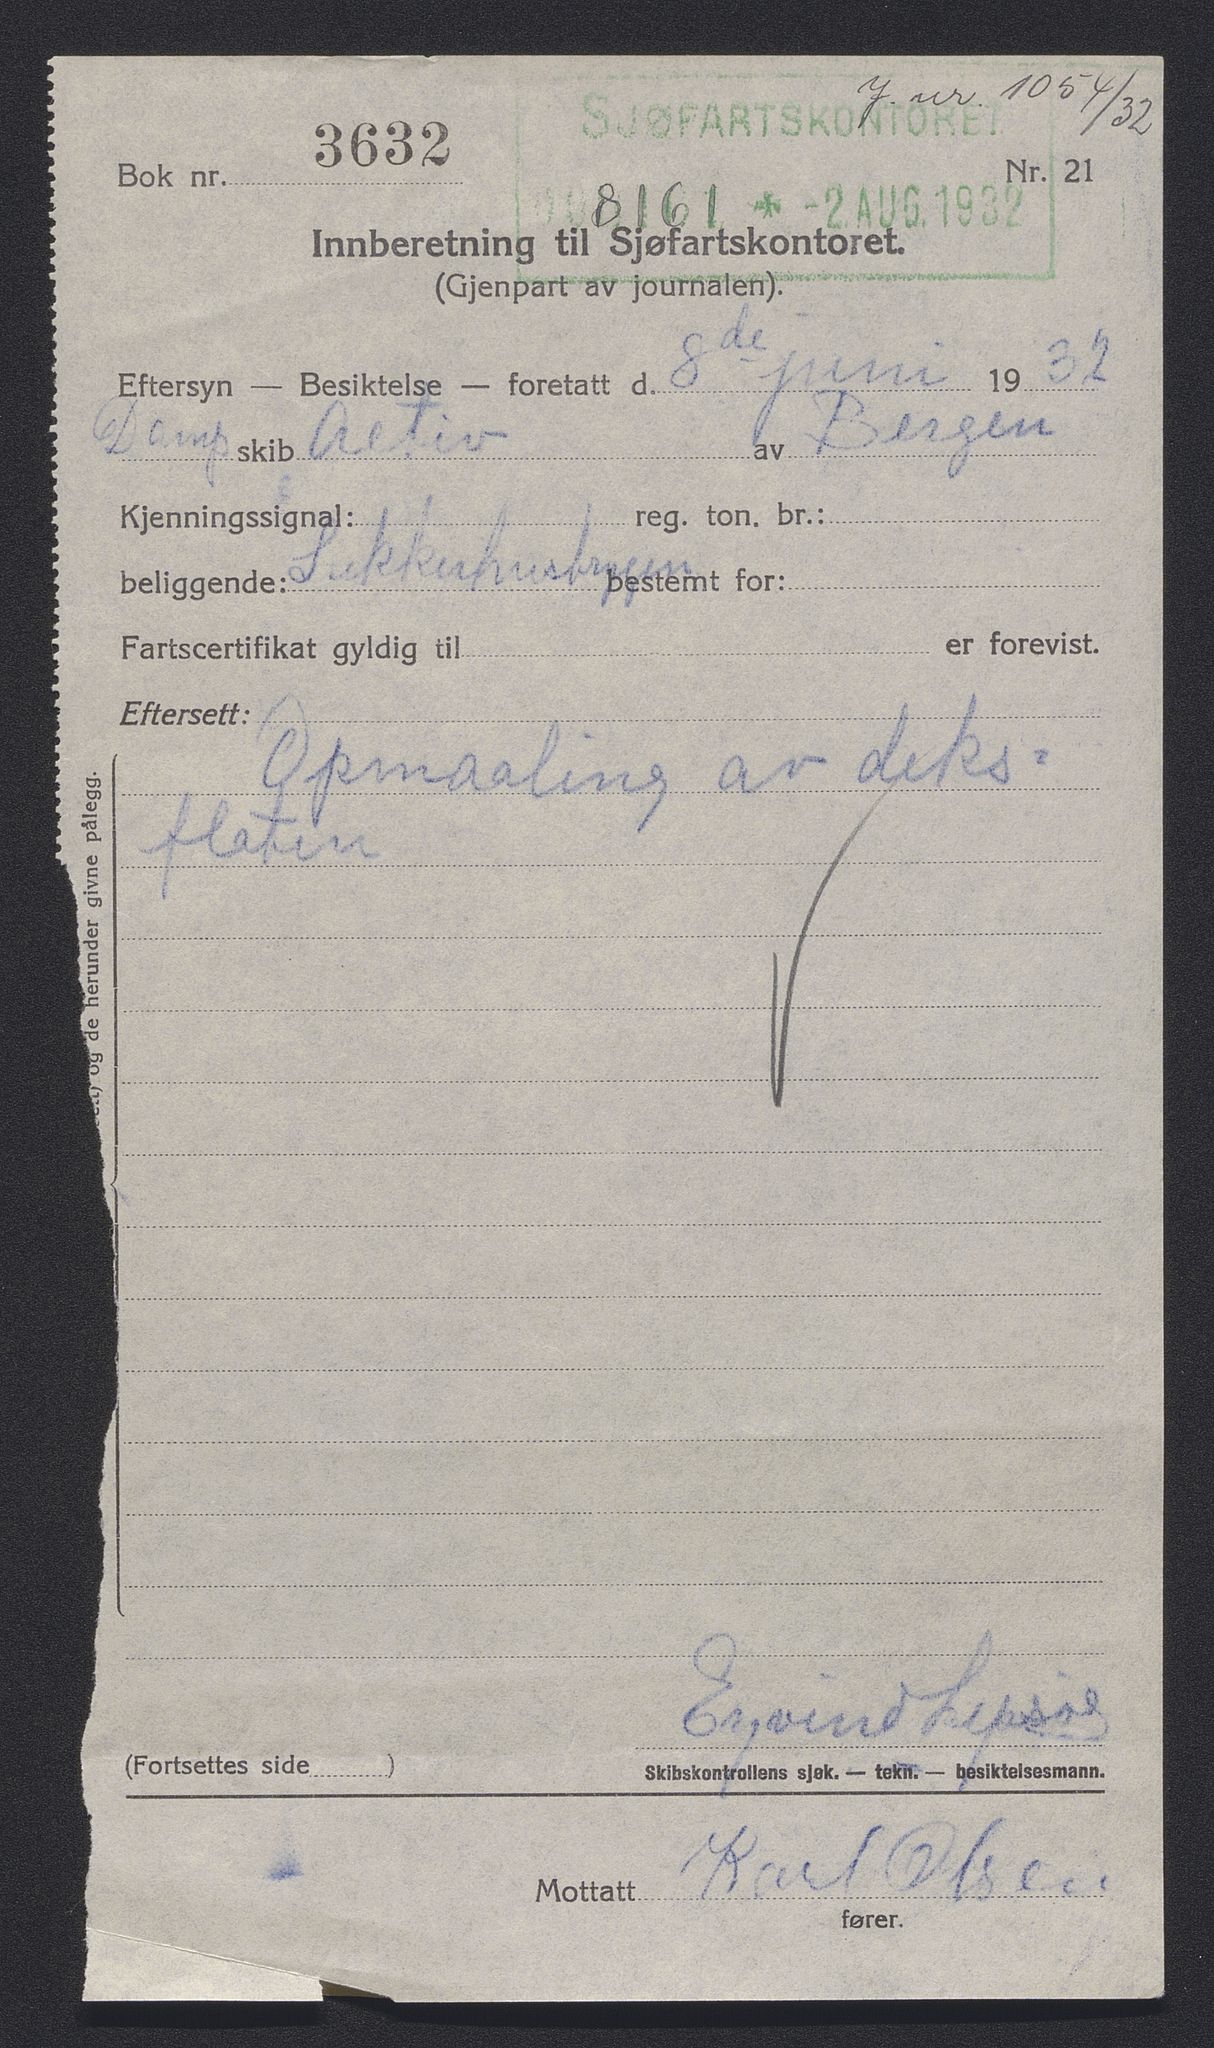 J. nr. 1054/32
SJØFARTSKONTORET
Bok nr. 3632
Nr. 21
8161 * -2 AUG. 1932
Innberetning til Sjøfartskontoret.
(Gjenpart av journalen).
Eftersyn — Besiktelse — foretatt d. 8de juni 1932
Damp skib Activ av Bergen
Kjenningssignal: reg. ton. br.:
beliggende: Sukkerhusbryggen bestemt for:
Fartscertifikat gyldig til er forevist.
Eftersett:
Opmaaling av deks=
flaten
og de herunder givne pålegg.
Eyvind Lepsøe
(Fortsettes side )
Skibskontrollens sjøk. — tekn. — besiktelsesmann.
Mottatt Karl Olsen
fører.